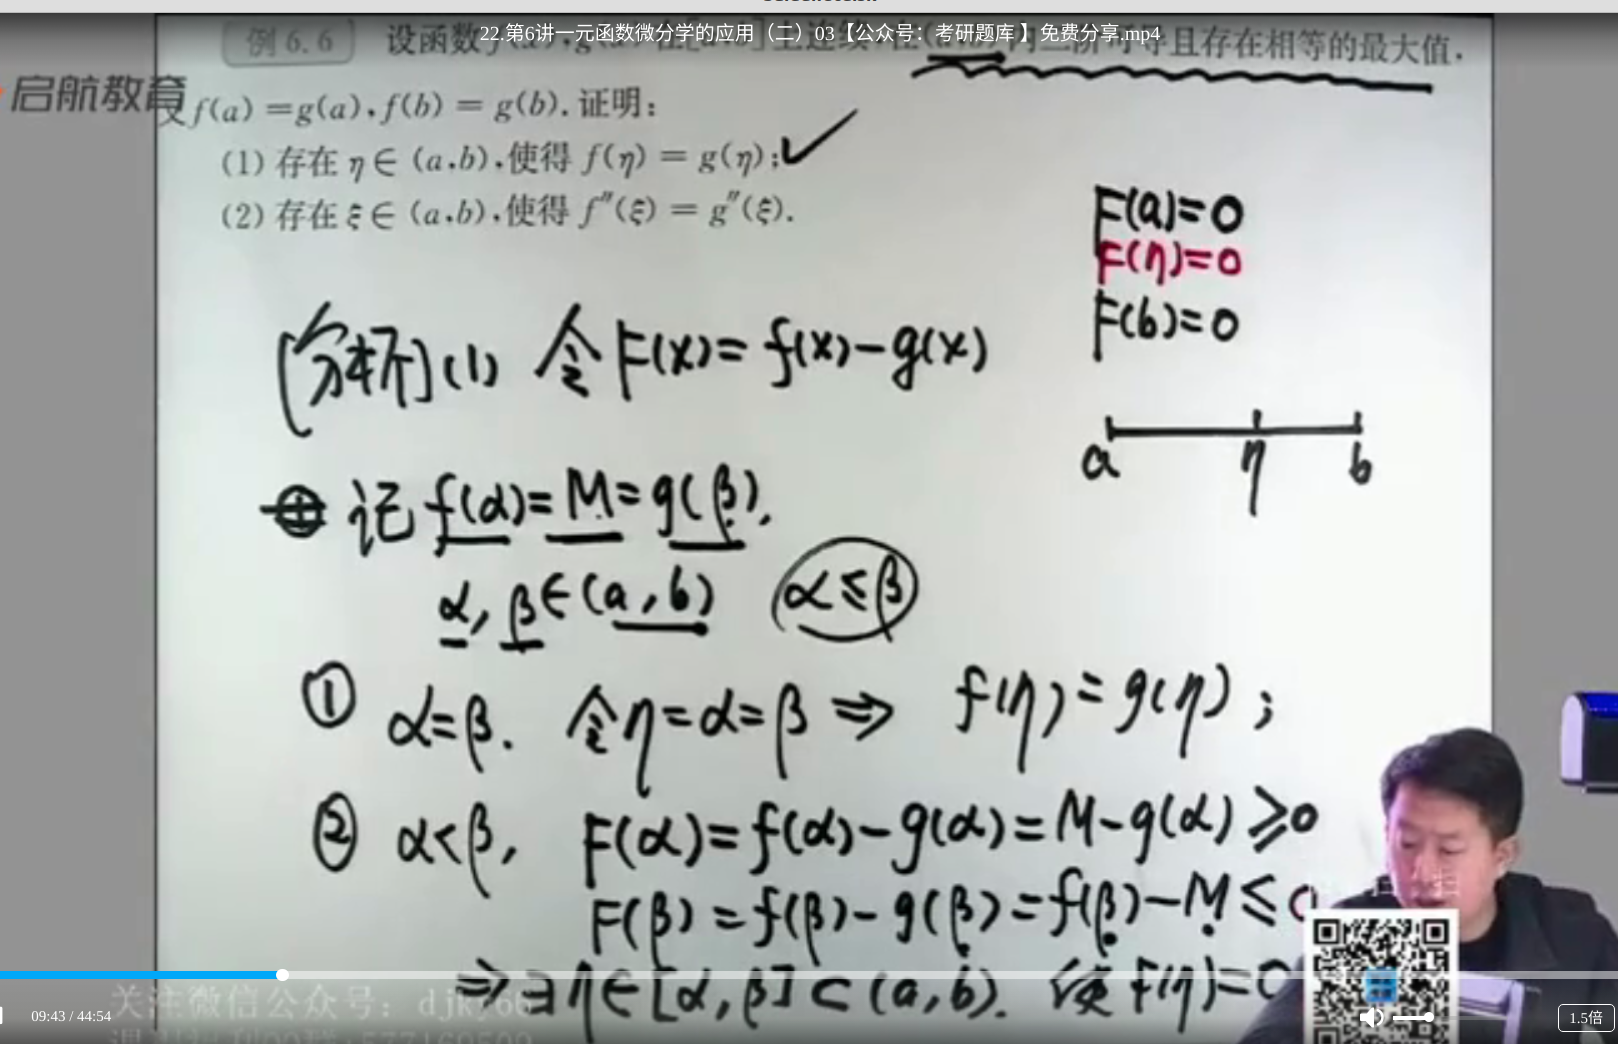 22.第6讲一元函数微分学的应用（二）03【公众号：考研题库 】免费分享.mp4
例 6.6 设函数 且存在相等的最大值.
启航教育
f(a) =g(a),f(b) = g(b).证明:
(1) 存在 η∈ (a,b),使得 f(η) = g(η);
(2) 存在 ξ∈ (a,b),使得 f″(ξ) = g″(ξ).
F(a)=0
F(η)=0
F(b)=0
[分析](1) 令F(x)=f(x)-g(x)
a η b
记 f(α)=M=g(β).
α,β∈(a,b) α≤β
① α=β. 令η=α=β ⇒ f(η)=g(η);
② α<β, F(α)=f(α)-g(α)=M-g(α)≥0
F(β)=f(β)-g(β)=f(β)-M≤0
⇒∃η∈[α,β]⊂(a,b). 使F(η)=0
关注微信公众号：djky66
09:43 / 44:54
1.5倍